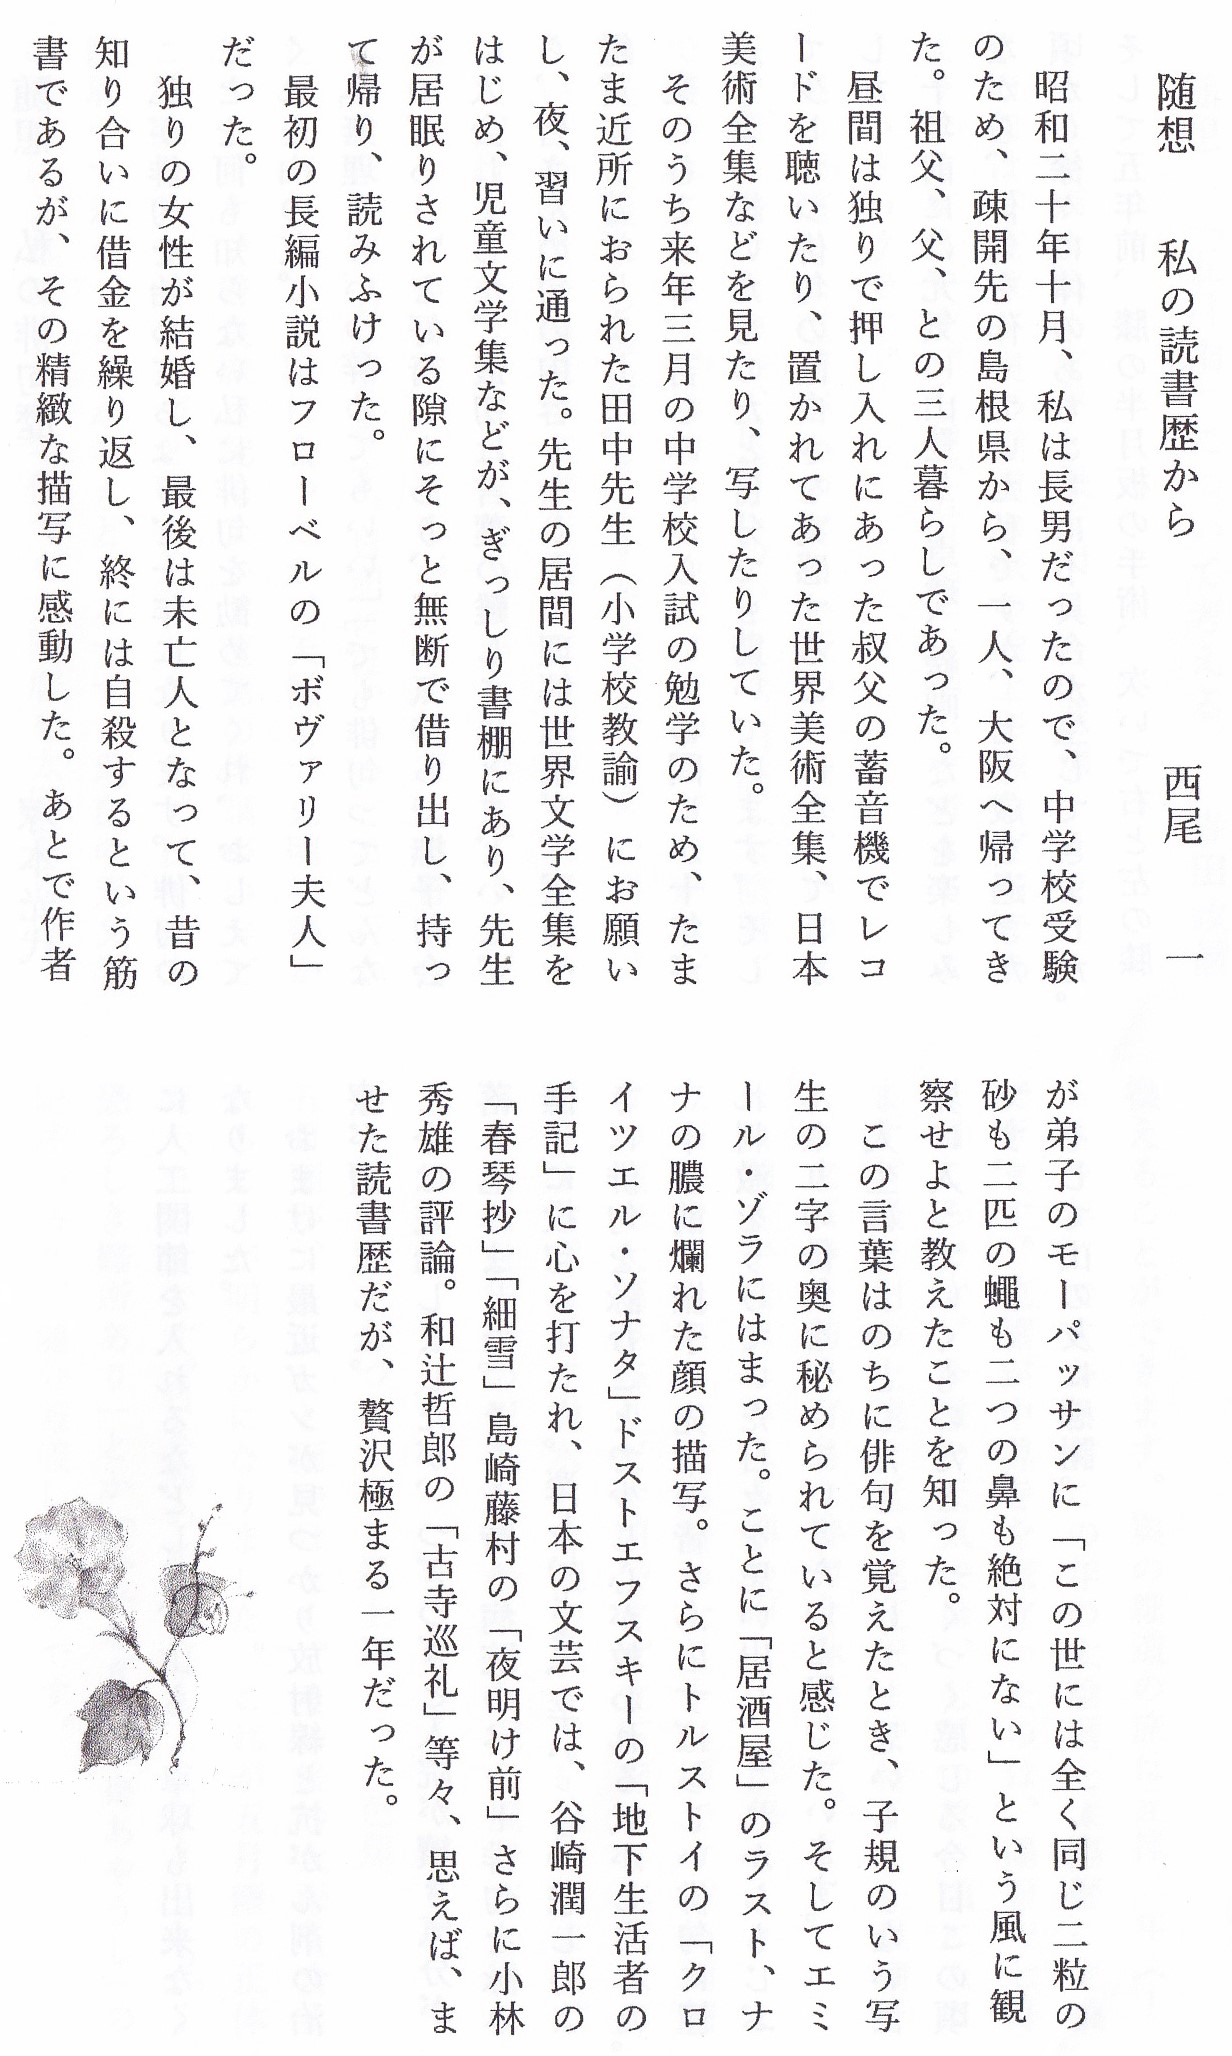 随想　私の読書歴から　西尾　一
昭和二十年十月、私は長男だったので、中学校受験
のため、疎開先の島根県から、一人、大阪へ帰ってき
た。祖父、父、との三人暮らしであった。
昼間は独りで押し入れにあった叔父の蓄音機でレコ
ードを聴いたり、置かれてあった世界美術全集、日本
美術全集などを見たり、写したりしていた。
そのうち来年三月の中学校入試の勉学のため、たま
たま近所におられた田中先生（小学校教諭）にお願い
し、夜、習いに通った。先生の居間には世界文学全集を
はじめ、児童文学集などが、ぎっしり書棚にあり、先生
が居眠りされている隙にそっと無断で借り出し、持っ
て帰り、読みふけった。
最初の長編小説はフローベルの「ボヴァリー夫人」
だった。
独りの女性が結婚し、最後は未亡人となって、昔の
知り合いに借金を繰り返し、終には自殺するという筋
書であるが、その精緻な描写に感動した。あとで作者
が弟子のモーパッサンに「この世には全く同じ二粒の
砂も二匹の蠅も二つの鼻も絶対にない」という風に観
察せよと教えたことを知った。
この言葉はのちに俳句を覚えたとき、子規のいう写
生の二字の奥に秘められていると感じた。そしてエミ
ール・ゾラにはまった。ことに「居酒屋」のラスト、ナ
ナの膿に爛れた顔の描写。さらにトルストイの「クロ
イツエル・ソナタ」ドストエフスキーの「地下生活者の
手記」に心を打たれ、日本の文芸では、谷崎潤一郎の
「春琴抄」「細雪」島崎藤村の「夜明け前」さらに小林
秀雄の評論。和辻哲郎の「古寺巡礼」等々、思えば、ま
せた読書歴だが、贅沢極まる一年だった。